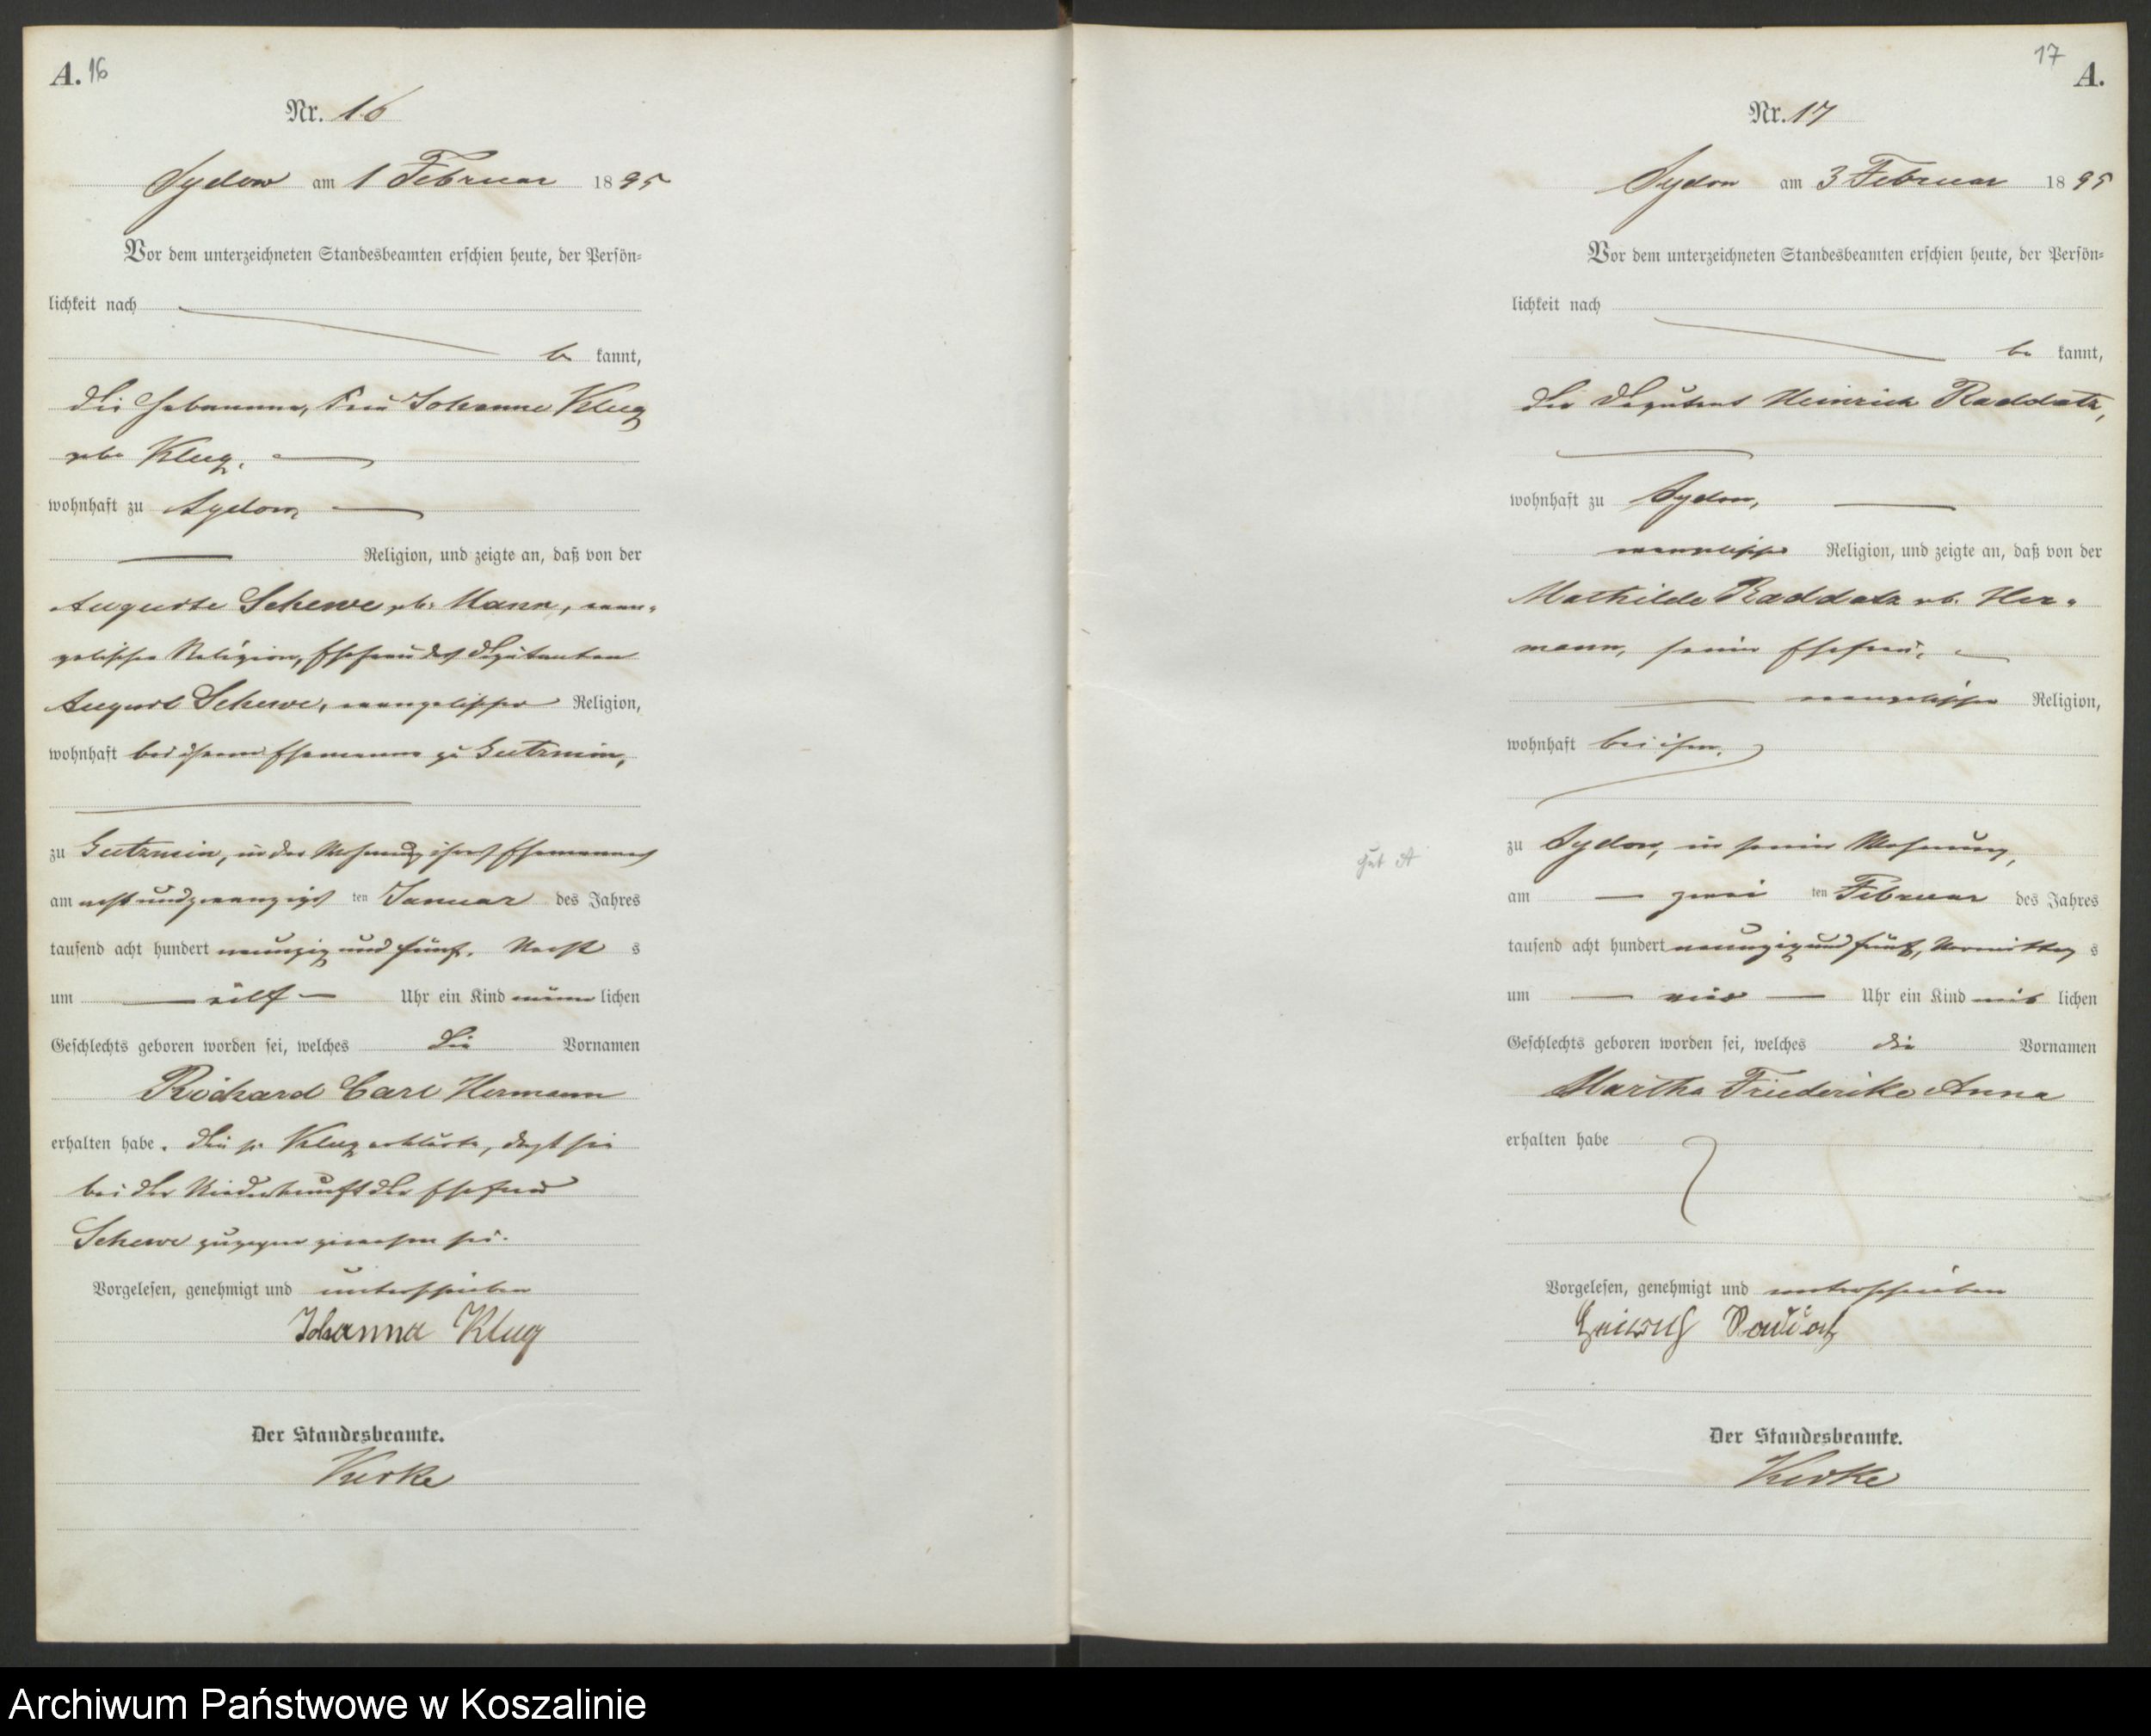 A. 16
Nr. 16
Sydow am 1 Februar 1895
Vor dem unterzeichneten Standesbeamten erschien heute, der Persön-
lichkeit nach
be kannt,
die Hebamme, Frau Johanne Klug
geb. Klug.
wohnhaft zu Sydow,
Religion, und zeigte an, daß von der
Auguste Schewe geb. Mann, evan-
gelischer Religion, Ehefrau des Deputanten
August Schewe, evangelischer Religion,
wohnhaft bei ihrem Ehemanne zu Gutzmin,
zu Gutzmin, in der Wohnung ihres Ehemannes
am achtundzwanzigs ten Januar des Jahres
tausend acht hundert neunzig und fünf, Nacht s
um elf Uhr ein Kind männ lichen
Geschlechts geboren worden sei, welches die Vornamen
Richard Carl Hermann
erhalten habe. Die p. Klug erklärte, daß sie
bei der Niederkunft der Ehefrau
Schewe zugegen gewesen sei.
Vorgelesen, genehmigt und unterschrieben
Johanna Klug
Der Standesbeamte.
17 A.
Nr. 17
Sydow am 3 Februar 1895
Vor dem unterzeichneten Standesbeamten erschien heute, der Persön-
lichkeit nach
be kannt,
der Deputant Heinrich Raddatz,
wohnhaft zu Sydow,
evangelischer Religion, und zeigte an, daß von der
Mathilde Raddatz geb. Her-
mann, seiner Ehefrau,
evangelischer Religion,
wohnhaft bei ihm,
zu Sydow, in seiner Wohnung,
am zwei ten Februar des Jahres
tausend acht hundert neunzig und fünf, Vormittag s
um vier Uhr ein Kind weib lichen
Geschlechts geboren worden sei, welches die Vornamen
Martha Friederike Anna
erhalten habe
Vorgelesen, genehmigt und unterschrieben
Heinrich Raddatz
Der Standesbeamte.
Archiwum Państwowe w Koszalinie